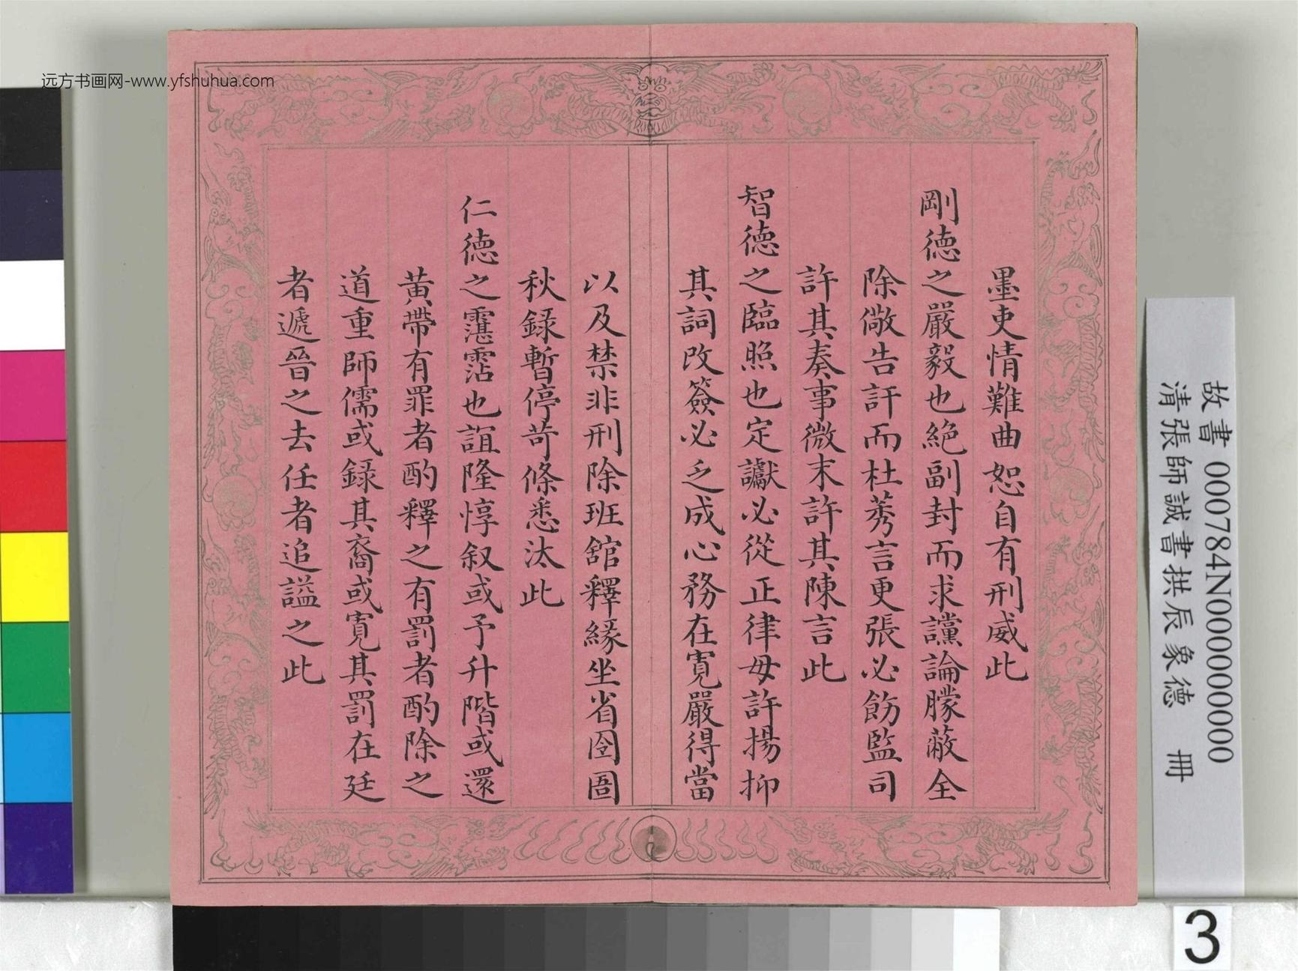 远方书画网-www.yfshuhua.com
墨吏情難曲恕自有刑威此
剛德之嚴毅也絕副封而求讜論朦蔽全
除儆告訐而杜莠言更張必飭監司
許其奏事微末許其陳言此
智德之臨照也定讞必從正律毋許揚抑
其詞改簽必乏成心務在寬嚴得當
以及禁非刑除班舘釋緣坐省囹圄
秋録暫停苛條悉汰此
仁德之霑也誼隆惇叙或予升階或還
黄帶有罪者酌釋之有罰者酌除之
道重師儒或録其裔或寬其罰在廷
者遞晉之去任者追謚之此
故書 000784N000000000
清張師誠書拱辰象德 冊
3